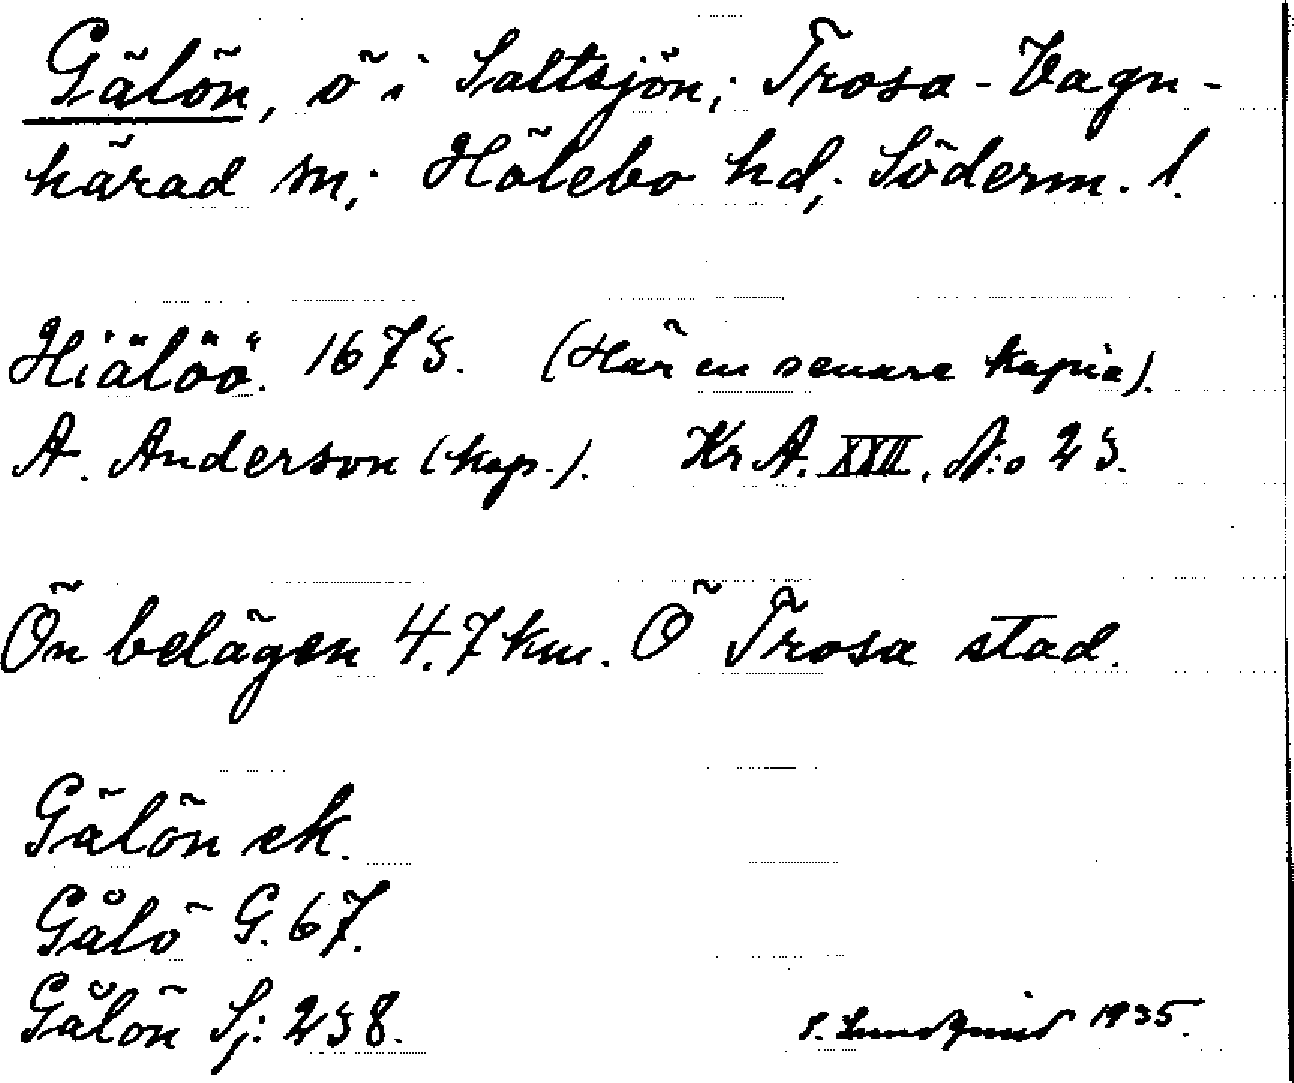 Gälön, ö i Saltsjön; Trosa-Vagn-
härad sn; Hölebo hd; Söderm. l.
Hiälöö. 1673. (Här en senare kopia).
A. Anderson (kop.). Kr A. XXII. N:o 23.
Ön belägen 4.7 km. Ö Trosa stad.
Gälön ek.
Gålö G. 67.
Gålön Sj: 238.
S. Lundqvist 1935.